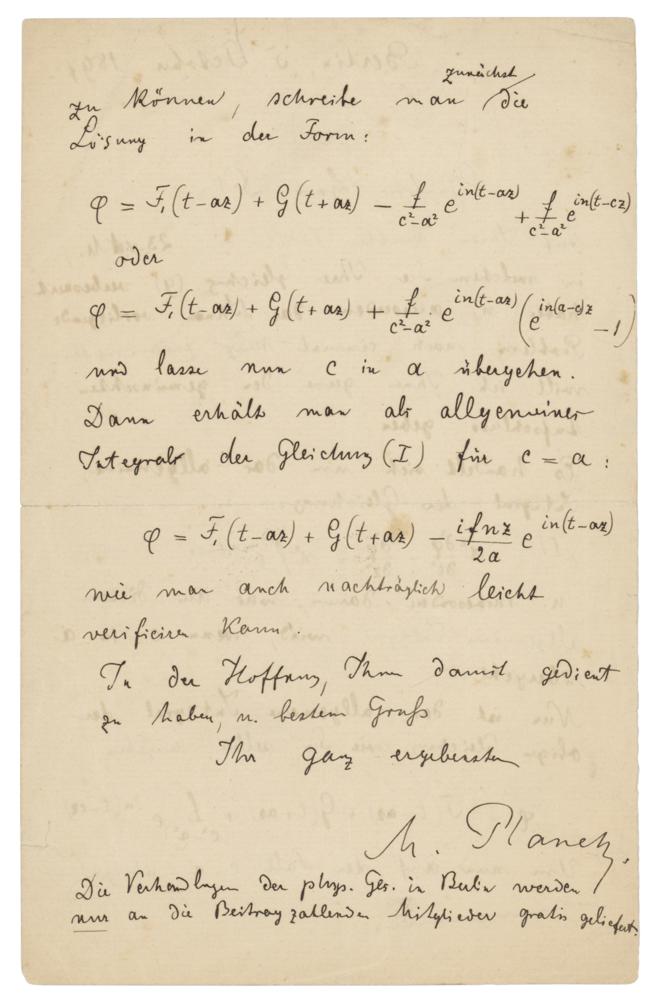 zunächst
zu können, schreibe man die
Lösung in der Form:
φ = F₁(t-az) + G(t+az) - f/(c²-a²) e^{in(t-az)} + f/(c²-a²) e^{in(t-cz)}
oder
φ = F₁(t-az) + G(t+az) + f/(c²-a²) · e^{in(t-az)} (e^{in(a-c)z} - 1)
und lasse nun c in a übergehen.
Dann erhält man als allgemeines
Integral der Gleichung (I) für c = a:
φ = F₁(t-az) + G(t+az) - ifnz/2a e^{in(t-az)}
wie man auch nachträglich leicht
verificiren kann.
In der Hoffnung, Ihnen damit gedient
zu haben, u. bestem Gruß
Ihr ganz ergebenster
M. Planck.
Die Verhandlungen der phys. Ges. in Berlin werden
nur an die Beitrag zahlenden Mitglieder gratis geliefert.